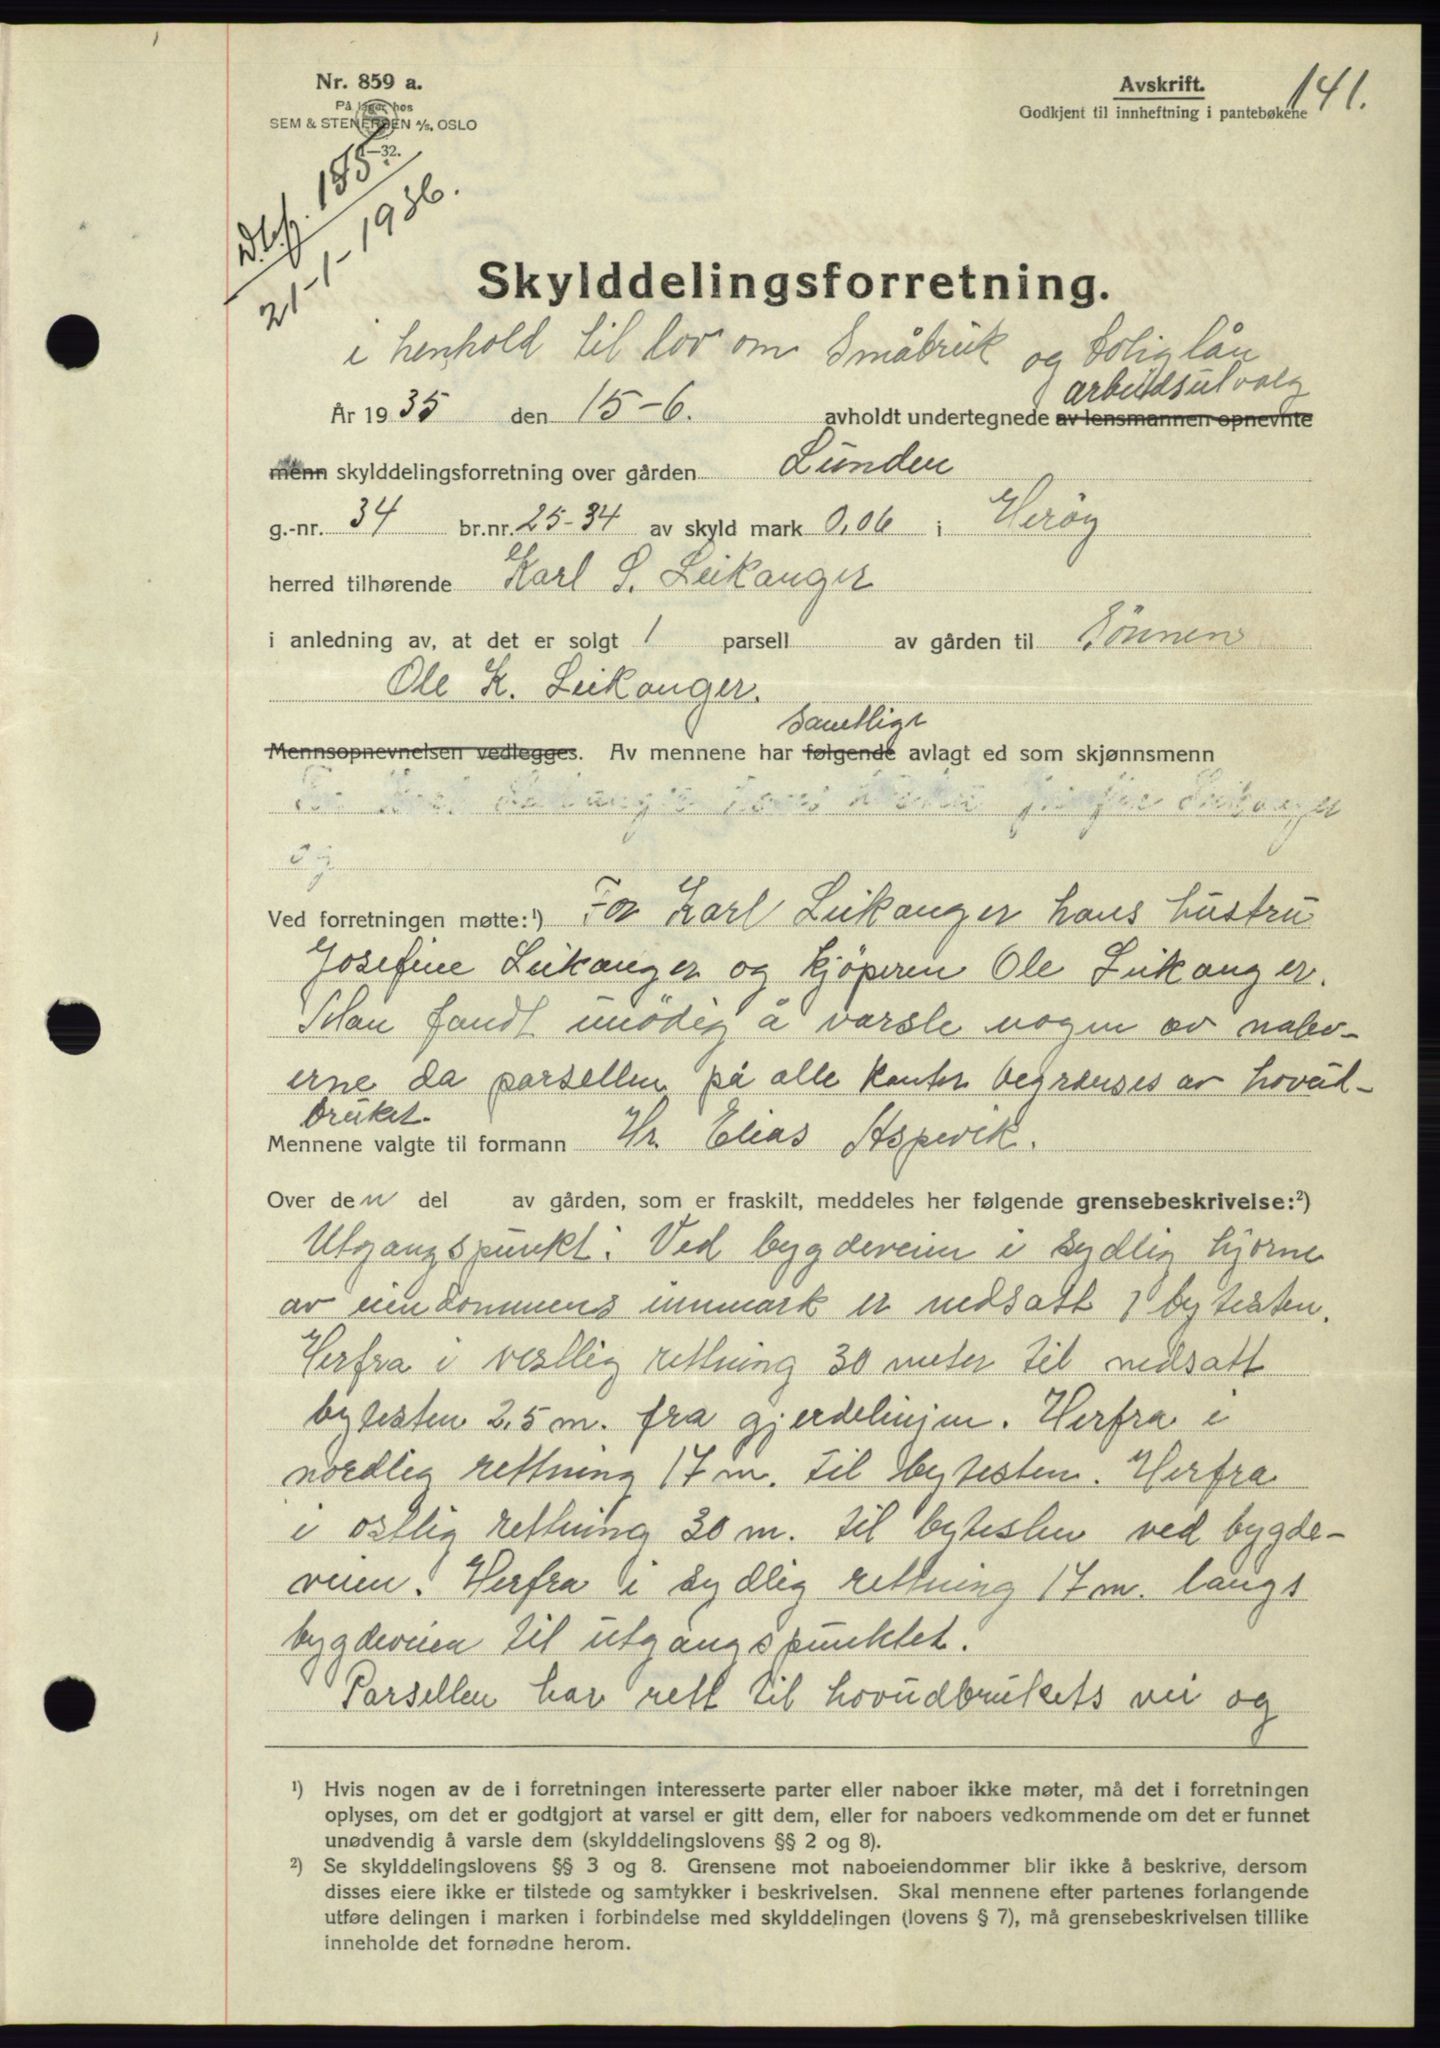 Nr. 859 a.
På lager hos
SEM & STENERSEN A/S, OSLO
1—32.
Avskrift.
Godkjent til innheftning i pantebøkene
141.
185
21-1-1936.
Skylddelingsforretning.
i henhold til lov om Småbruk og boliglån
arbeidsutvalg
År 1935 den 15-6. avholdt undertegnede av lensmannen opnevnte
menn skylddelingsforretning over gården Lunden
g.-nr. 34 br.nr. 25-34 av skyld mark 0,06 i Herøy
herred tilhørende Karl S. Leikanger
i anledning av, at det er solgt 1 parsell av gården til Sønnen
Ole K. Leikanger.
samtlige
Mennsopnevnelsen vedlegges. Av mennene har følgende avlagt ed som skjønnsmenn
Leikanger
og
Ved forretningen møtte:¹) For Karl Leikanger hans hustru
Josefine Leikanger og kjøperen Ole Leikanger.
Man fandt unødig å varsle nogen av nabo-
erne da parsellen på alle kanter begrænses av hovud-
bruket.
Mennene valgte til formann Hr. Elias Aspevik.
Over den del av gården, som er fraskilt, meddeles her følgende grensebeskrivelse:²)
Utgangspunkt: Ved bygdeveien i sydlig hjørne
av eiendommens innmark er nedsatt 1 bytesten.
Herfra i vestlig rettning 30 meter til nedsatt
bytesten 2,5 m. fra gjerdelinjen. Herfra i
nordlig rettning 17 m. til bytesten. Herfra
i østlig rettning 30 m. til bytesten ved bygde-
veien. Herfra i sydlig rettning 17 m. langs
bygdeveien til utgangspunktet.
Parsellen har rett til hovudbrukets vei og
¹) Hvis nogen av de i forretningen interesserte parter eller naboer ikke møter, må det i forretningen
oplyses, om det er godtgjort at varsel er gitt dem, eller for naboers vedkommende om det er funnet
unødvendig å varsle dem (skylddelingslovens §§ 2 og 8).
²) Se skylddelingslovens §§ 3 og 8. Grensene mot naboeiendommer blir ikke å beskrive, dersom
disses eiere ikke er tilstede og samtykker i beskrivelsen. Skal mennene efter partenes forlangende
utføre delingen i marken i forbindelse med skylddelingen (lovens § 7), må grensebeskrivelsen tillike
inneholde det fornødne herom.